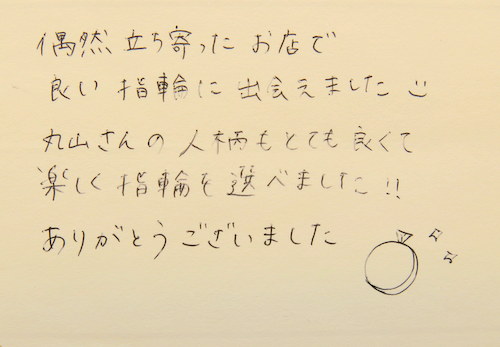 偶然 立ち寄った お店で
良い 指輪に 出会えました
丸山さんの 人柄もとても良くて
楽しく 指輪を 選べました!!
ありがとうございました